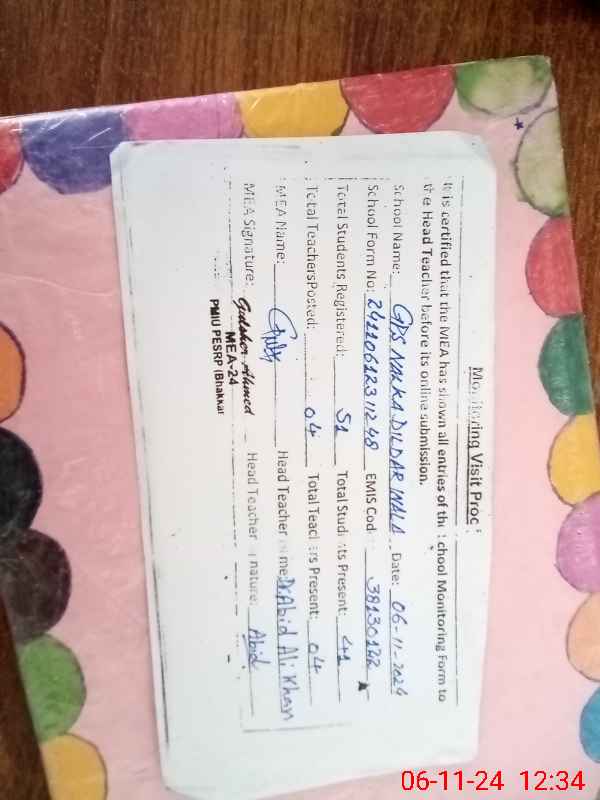 Monitoring Visit Proc
It is certified that the MEA has shown all entries of the School Monitoring Form to
the Head Teacher before its online submission.
School Name: GPS NALKA DILDAR WALA Date: 06-11-2024
School Form No: 241106123 11248 EMIS Cod 38130122
Total Students Registered: 51 Total Students Present: 41
Total TeachersPosted: 04 Total Teachers Present: 04
MEA Name: Head Teacher me: Dr Abid Ali Khan
MEA Signature: Gulsher Ahmed Head Teacher nature: Abid
MEA-24
PMIU PESRP (Bhakkar
06-11-24 12:34